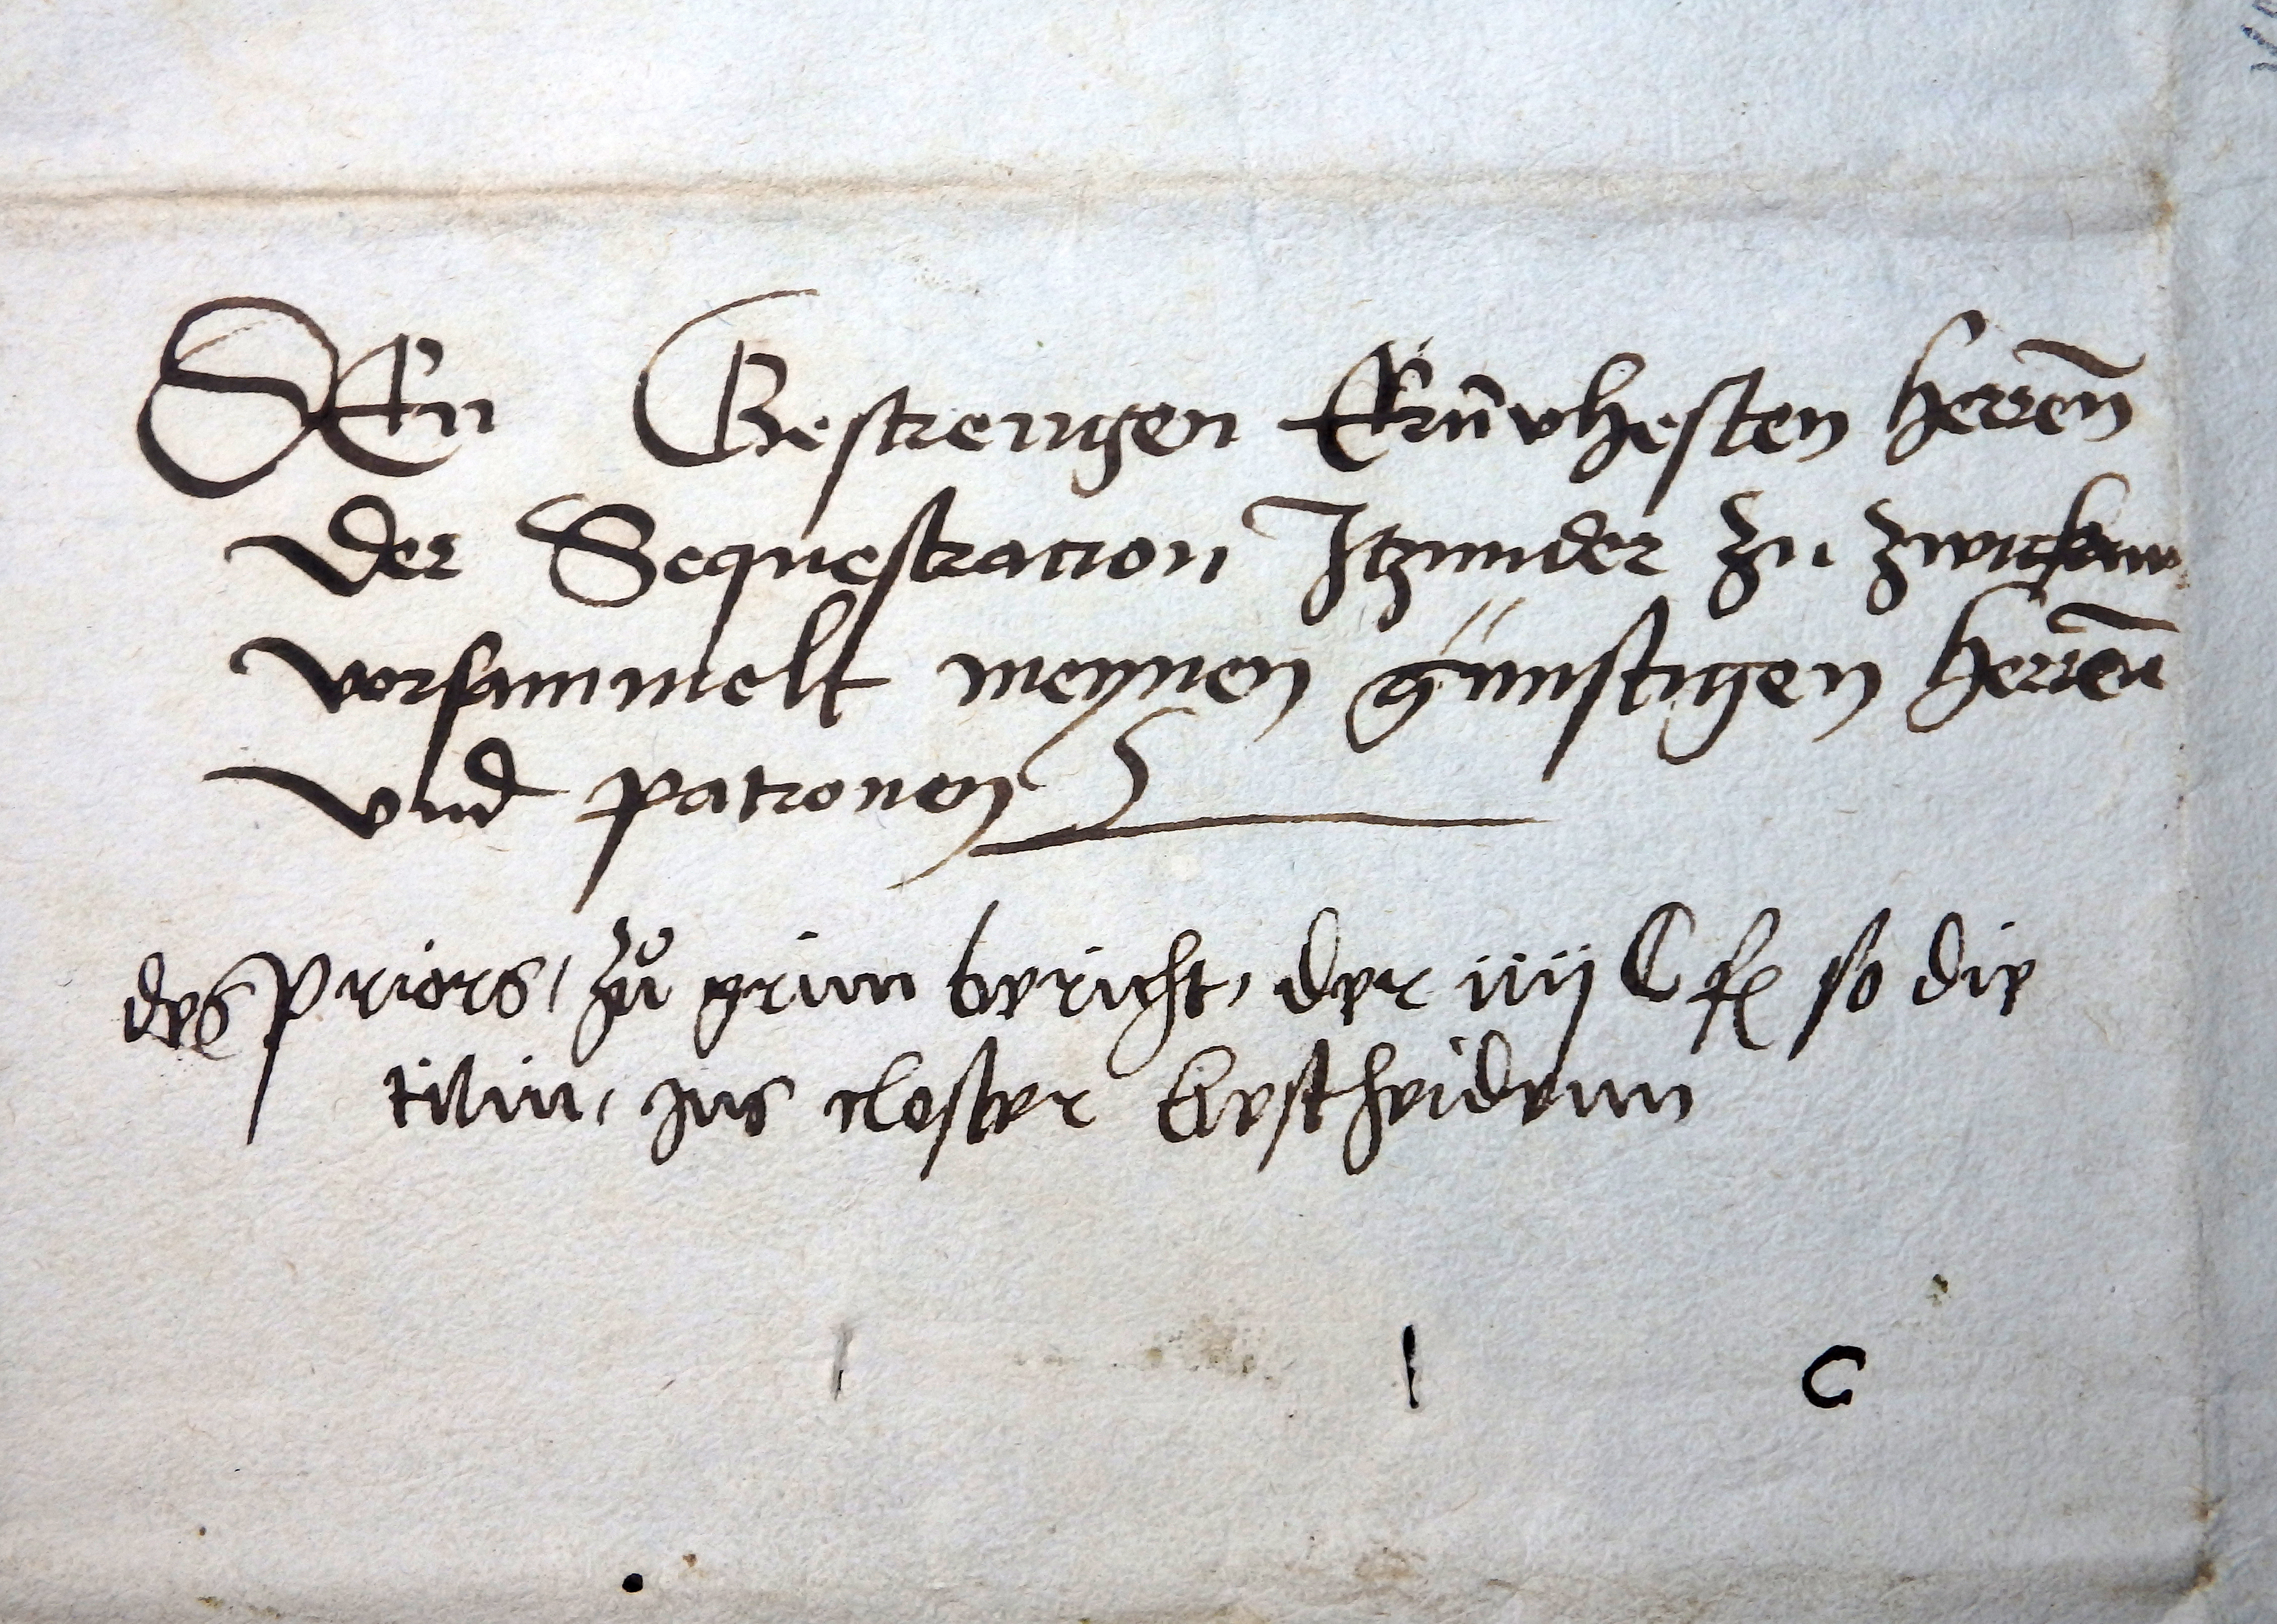 DEn Gestrengen Ernvhesten herren̄
der Sequestracion Itzunder zu zwickaw
vorsammelt meynen günstigen herren̄
vnd patronen
des Priors, zů grun bericht, der iiij C fl so die
tilin, ins closter bescheidenn
C